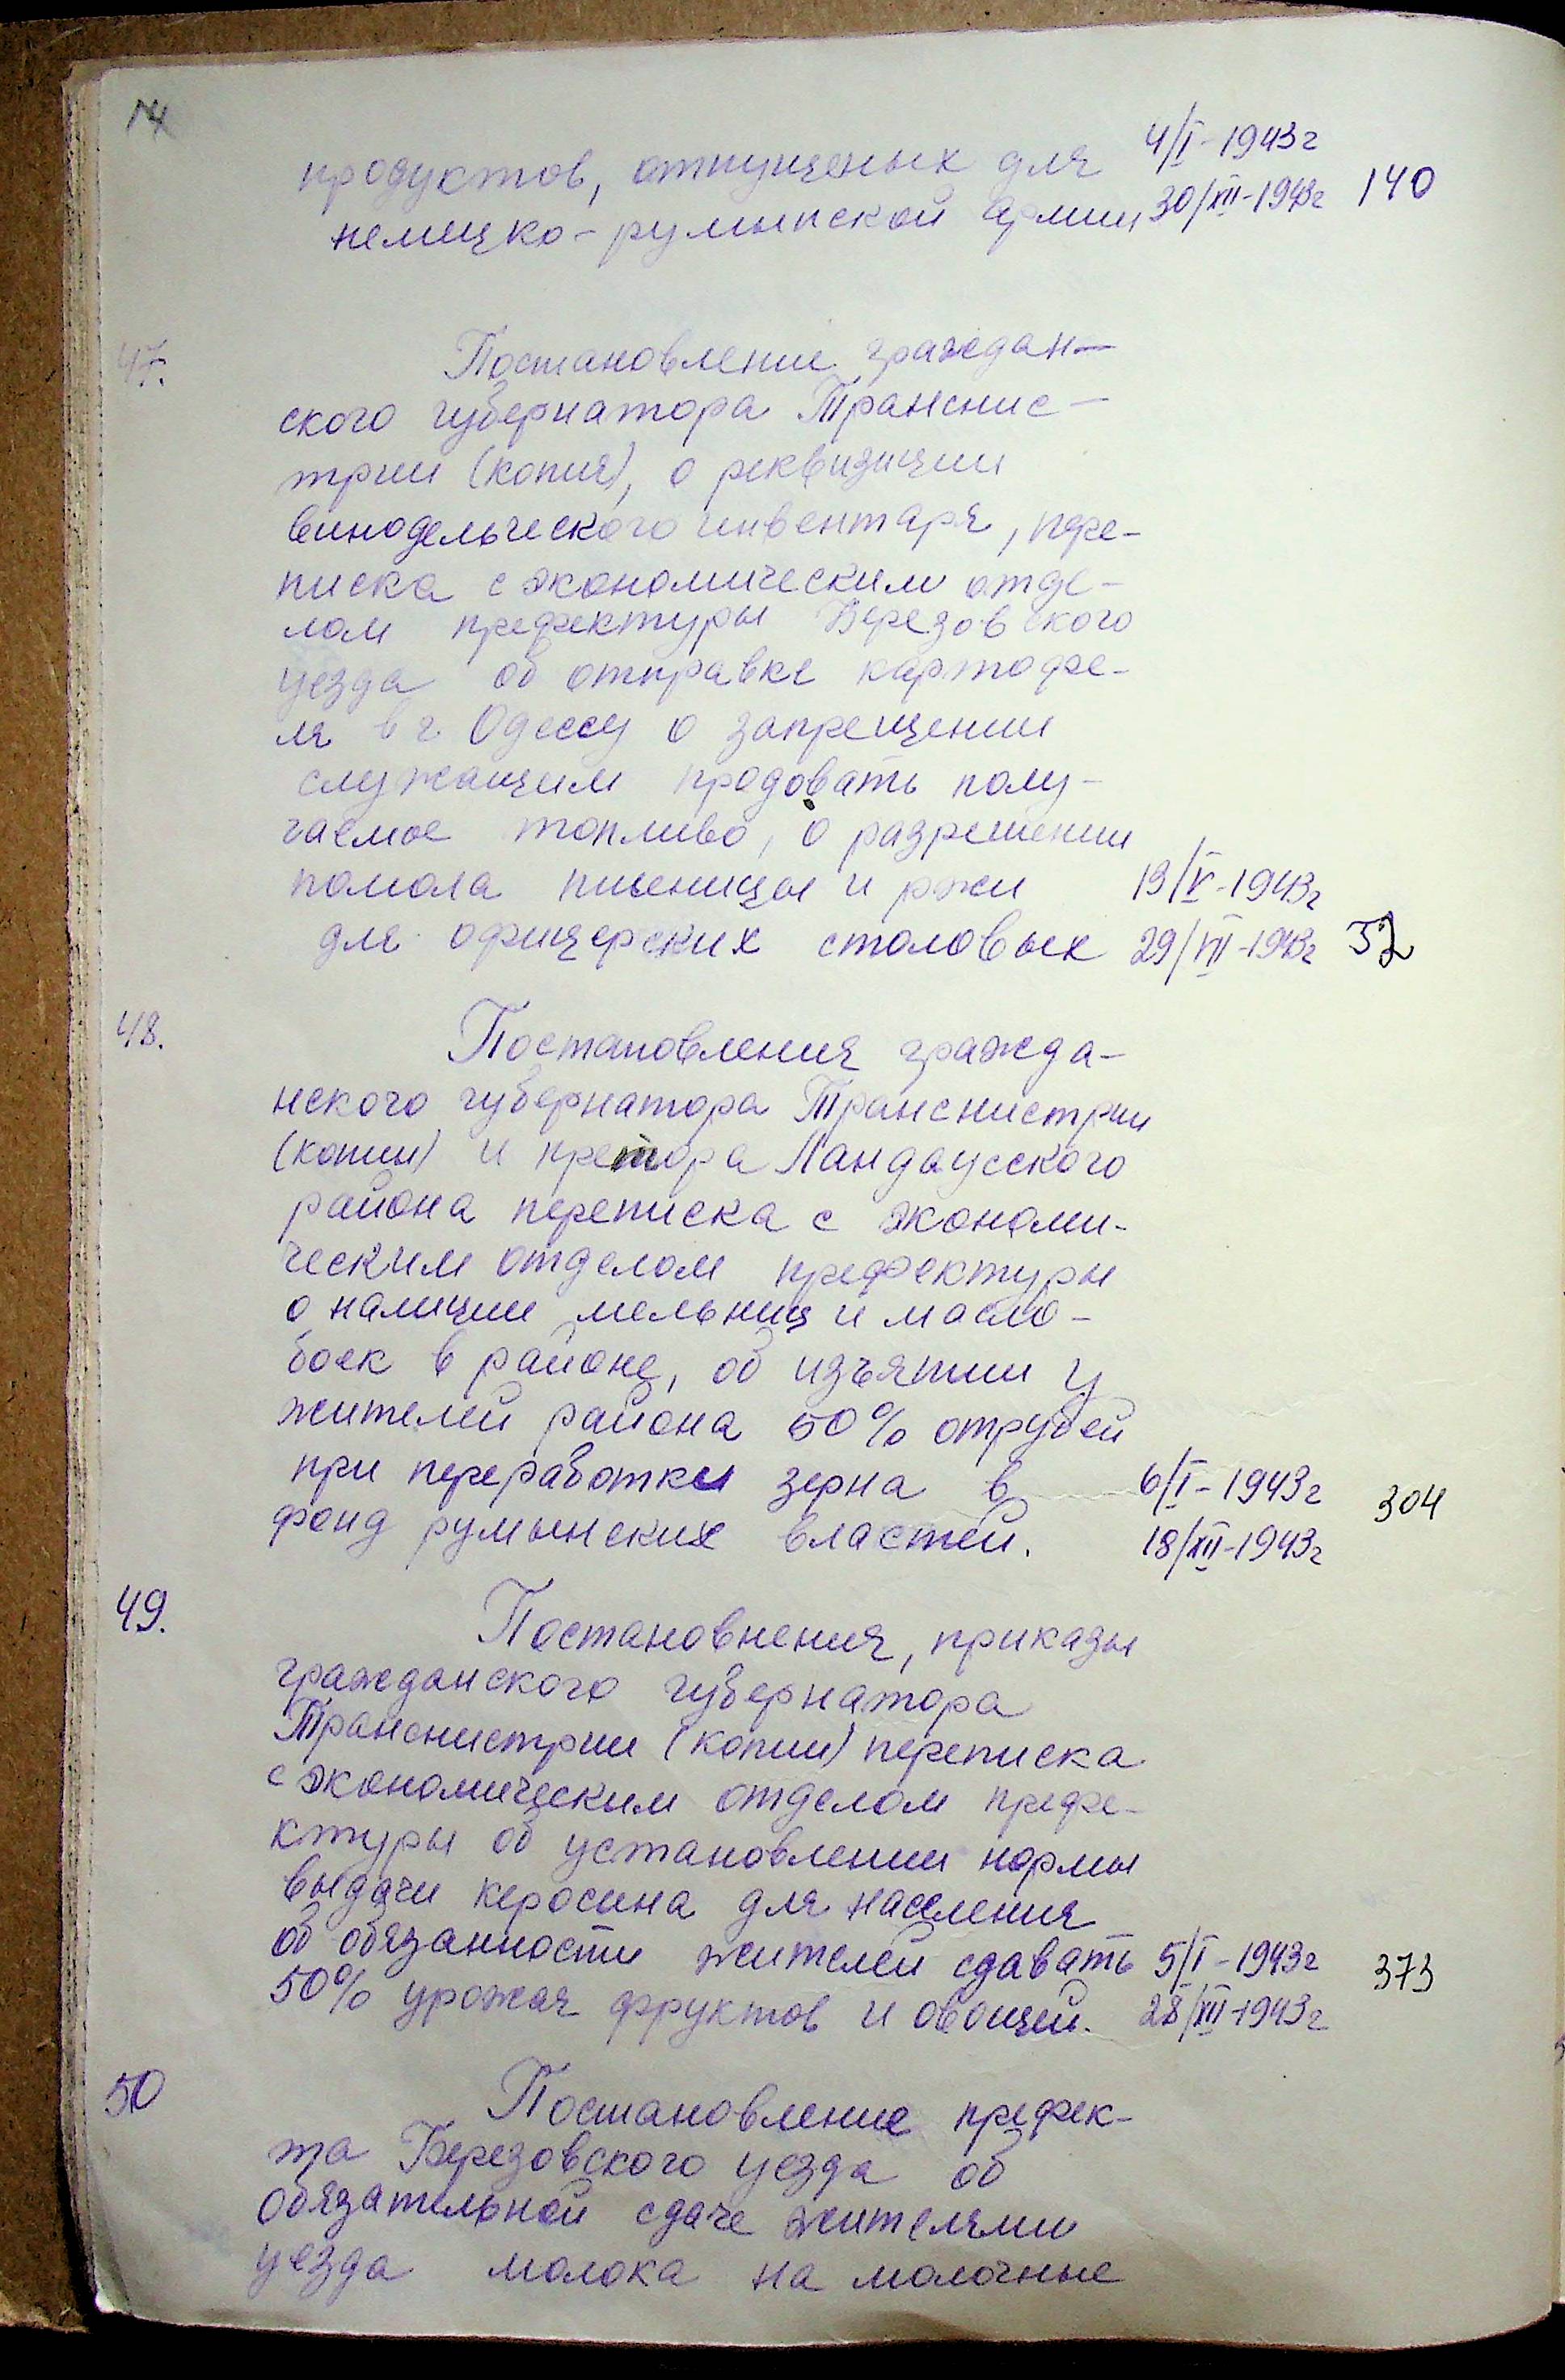 14
продуктов, отпущеных для 4/I-1943г
немецко-румынской армии 30/XII-1943г 140
47. Постановление граждан-
ского губернатора Транснис-
трии (копия), о реквизиции
винодельческого инвентаря, пере-
писка с экономическим отде-
лом префектуры Березовского
уезда об отправке картофе-
ля в г Одессу о запрещении
служащим продовать полу-
чаемое топливо, о разрешении
помола пшеницы и ржи 13/V-1943г
для офицерских столовых 29/VII-1943г 52
48. Постановления гражда-
нского губернатора Транснистрии
(копии) и претора Ландаусского
района переписка с экономи-
ческим отделом префектуры
о наличии мельниц и масло-
боек в районе, об изъятии у
жителей района 50% отрубей
при переработки зерна в 6/I-1943г 304
фонд румынских властей. 18/XII-1943г
49. Постановнения, приказы
гражданского губернатора
Транснистрии (копии) переписка
с экономическим отделом префе-
ктуры об установлении нормы
выдачи керосина для населения
об обязанности жителей сдавать 5/I-1943г 373
50% урожая фруктов и овощей. 28/XII-1943г
50 Постановление префек-
та Березовского уезда об
обязательной сдаче жителями
уезда молока на молочные